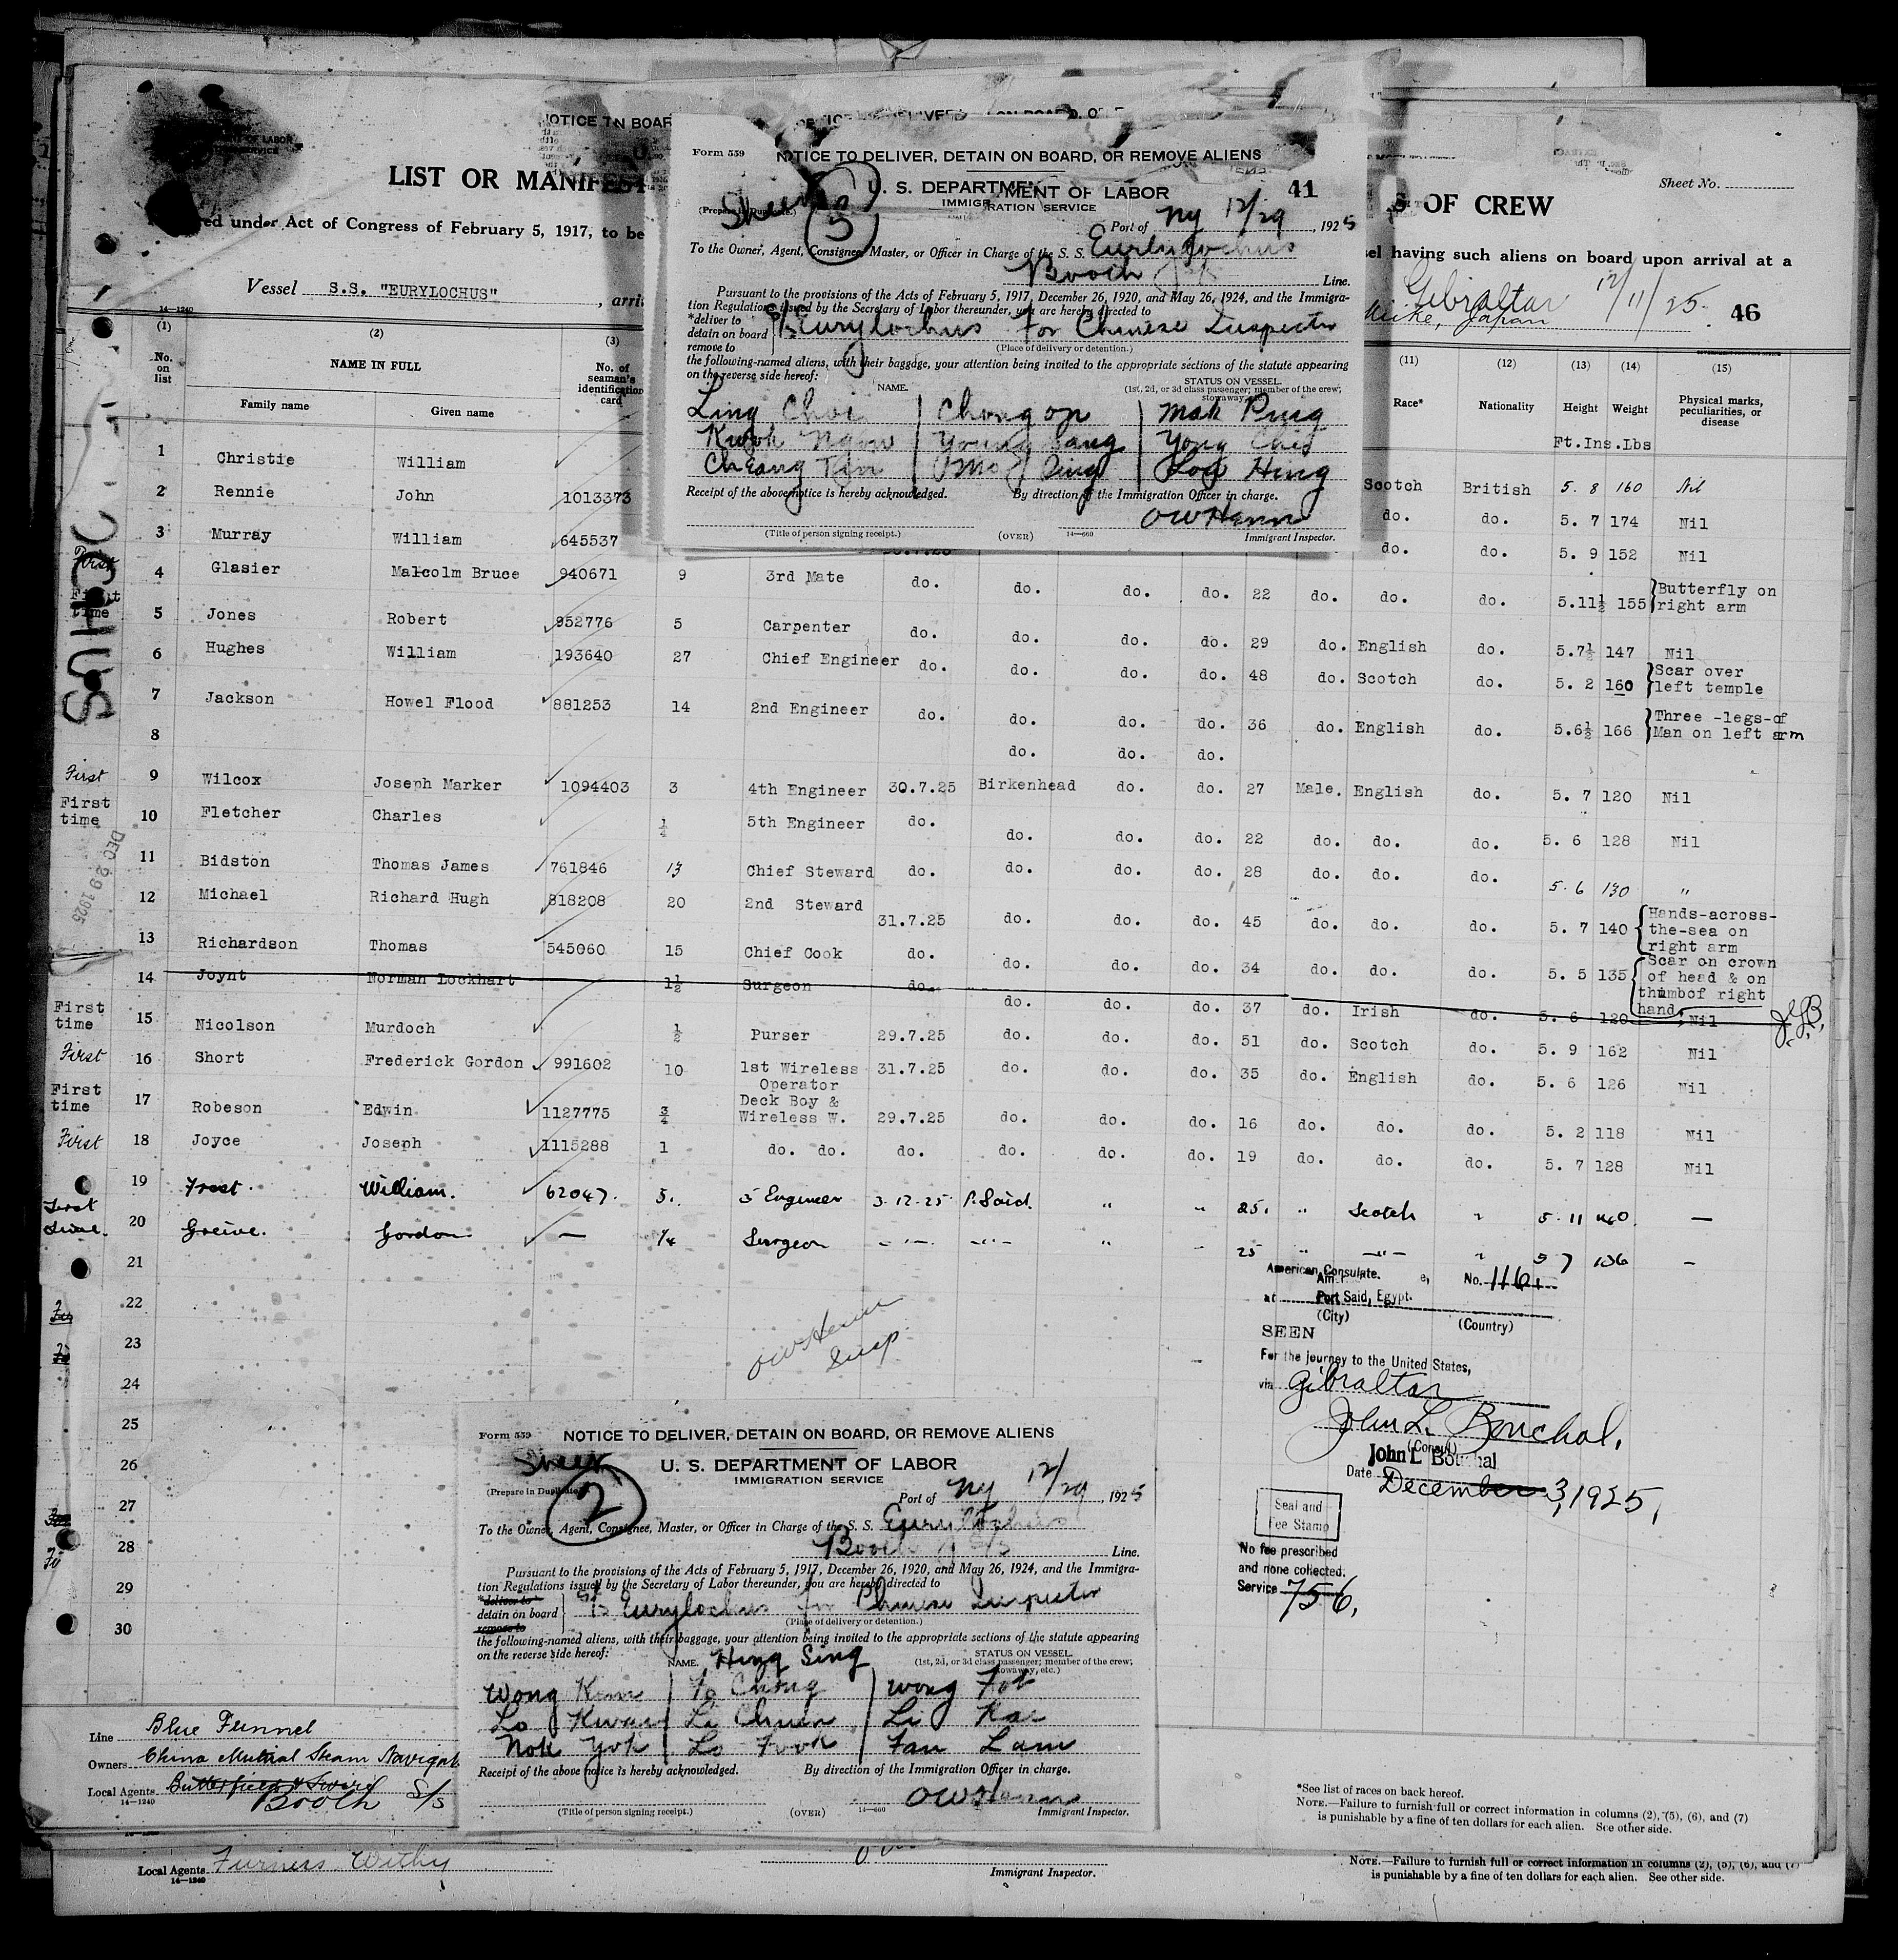 LIST OR MANIFEST
S OF CREW
Sheet No.
ed under Act of Congress of February 5, 1917, to be
sel having such aliens on board upon arrival at a
Vessel S.S. "EURYLOCHUS", arri
Gibraltar 12/11/25.
Miike, Japan
46
14-1240
NOTICE TO DELIVER, DETAIN ON BOARD, OR REMOVE ALIENS
Form 559
U. S. DEPARTMENT OF LABOR
41
IMMIGRATION SERVICE
(Prepare in Duplicate.)
Sheet
5
Port of NY 12/29, 1925
To the Owner, Agent, Consignee, Master, or Officer in Charge of the S. S. Eurylochus
Booth Line.
Pursuant to the provisions of the Acts of February 5, 1917, December 26, 1920, and May 26, 1924, and the Immigra-
tion Regulations issued by the Secretary of Labor thereunder, you are hereby directed to
*deliver to
detain on board
remove to
SS Eurylochus for Chinese Inspector
(Place of delivery or detention.)
the following-named aliens, with their baggage, your attention being invited to the appropriate sections of the statute appearing
on the reverse side hereof:
NAME.
STATUS ON VESSEL.
(1st, 2d, or 3d class passenger; member of the crew;
stowaway,
Ling Choi Chong on Mak Ping
Kwok Ngow Young Sang Yong Chis
Cheang Tin Ping Loy Hing
Receipt of the above notice is hereby acknowledged. By direction of the Immigration Officer in charge.
OWHenn
(Title of person signing receipt.) (OVER) 14-660 Immigrant Inspector.
(1) (2) (3) (11) (12) (13) (14) (15)
No. on list
NAME IN FULL
Family name Given name
No. of seaman's identification card
Race* Nationality Height Weight Physical marks, peculiarities, or disease
Ft.Ins.Lbs
1 Christie William Scotch British 5. 8 160 Nil
2 Rennie John 1013373 do. do. 5. 7 174 Nil
3 Murray William 645537 do. do. 5. 9 152 Nil
First
4 Glasier Malcolm Bruce 940671 9 3rd Mate do. do. do. do. 22 do. do. do. 5.11½ 155 Butterfly on right arm
First time
5 Jones Robert 952776 5 Carpenter do. do. do. do. 29 do. English do. 5.7½ 147 Nil
6 Hughes William 193640 27 Chief Engineer do. do. do. do. 48 do. Scotch do. 5. 2 160 Scar over left temple
7 Jackson Howel Flood 881253 14 2nd Engineer do. do. do. do. 36 do. English do. 5.6½ 166 Three -legs-of Man on left arm
8 do. do. do.
First 9 Wilcox Joseph Marker 1094403 3 4th Engineer 30.7.25 Birkenhead do. do. 27 Male. English do. 5. 7 120 Nil
First time 10 Fletcher Charles ¼ 5th Engineer do. do. do. do. 22 do. do. do. 5. 6 128 Nil
11 Bidston Thomas James 761846 13 Chief Steward do. do. do. do. 28 do. do. do. 5. 6 130 "
12 Michael Richard Hugh 818208 20 2nd Steward 31.7.25 do. do. do. 45 do. do. do. 5. 7 140 Hands-across-the-sea on right arm
13 Richardson Thomas 545060 15 Chief Cook do. do. do. do. 34 do. do. do. 5. 5 135 Scar on crown of head & on thumbof right hand
14 Joynt Norman Lockhart 1½ Surgeon do. do. do. do. 37 do. Irish do. 5. 6 120 Nil
First time 15 Nicolson Murdoch ½ Purser 29.7.25 do. do. do. 51 do. Scotch do. 5. 9 162 Nil
First 16 Short Frederick Gordon 991602 10 1st Wireless Operator 31.7.25 do. do. do. 35 do. English do. 5. 6 126 Nil
First time 17 Robeson Edwin 1127775 ¾ Deck Boy & Wireless W. 29.7.25 do. do. do. 16 do. do. do. 5. 2 118 Nil
First 18 Joyce Joseph 1115288 1 do. do. do. do. do. do. 19 do. do. do. 5. 7 128 Nil
19 Frost. William. 62047. 5. 5 Engineer 3.12.25 P. Said. " " 25. " Scotch " 5. 11 140. —
First time. 20 Greive. Gordon — ¼ Surgeon -"- -"- " 25 " -"- " 5 7 136 -
21
22
23
24
25
26
27
28
29
30
DEC 29 1925
OCHUS
OWHenn
Insp
American Consulate. No. 1161
at Port Said, Egypt.
(City) (Country)
SEEN
For the journey to the United States,
via Gibraltar
John L. Bouchal,
(Consul)
John L Bouchal
Date December 3, 1925.
Seal and
Fee Stamp
No fee prescribed
and none collected.
Service 756.
Form 559 NOTICE TO DELIVER, DETAIN ON BOARD, OR REMOVE ALIENS
Sheet
2
U. S. DEPARTMENT OF LABOR
IMMIGRATION SERVICE
(Prepare in Duplicate)
Port of NY 12/29, 1925
To the Owner, Agent, Consignee, Master, or Officer in Charge of the S. S. Eurylochus
Booth Line.
Pursuant to the provisions of the Acts of February 5, 1917, December 26, 1920, and May 26, 1924, and the Immigra-
tion Regulations issued by the Secretary of Labor thereunder, you are hereby directed to
*deliver to
detain on board
remove to
SS Eurylochus for Chinese Inspector
(Place of delivery or detention.)
the following-named aliens, with their baggage, your attention being invited to the appropriate sections of the statute appearing
on the reverse side hereof:
NAME. Hing Sing
STATUS ON VESSEL.
(1st, 2d, or 3d class passenger; member of the crew;
stowaway, etc.)
Wong Kim Yo Chong Wong Fot
Lo Kwan Li Chuen Li Kai
Nok Yok Lo Fook Fan Lam
Receipt of the above notice is hereby acknowledged. By direction of the Immigration Officer in charge.
OWHenn
(Title of person signing receipt.) (OVER) 14-660 Immigrant Inspector.
Line Blue Funnel
Owners China Mutual Steam Navigat
Local Agents Butterfield & Swire
Booth S/S
14-1240
*See list of races on back hereof.
NOTE.—Failure to furnish full or correct information in columns (2), (5), (6), and (7)
is punishable by a fine of ten dollars for each alien. See other side.
Local Agents Furness Withy
14-1240
Immigrant Inspector.
NOTE.—Failure to furnish full or correct information in columns (2), (5), (6), and (7)
is punishable by a fine of ten dollars for each alien. See other side.